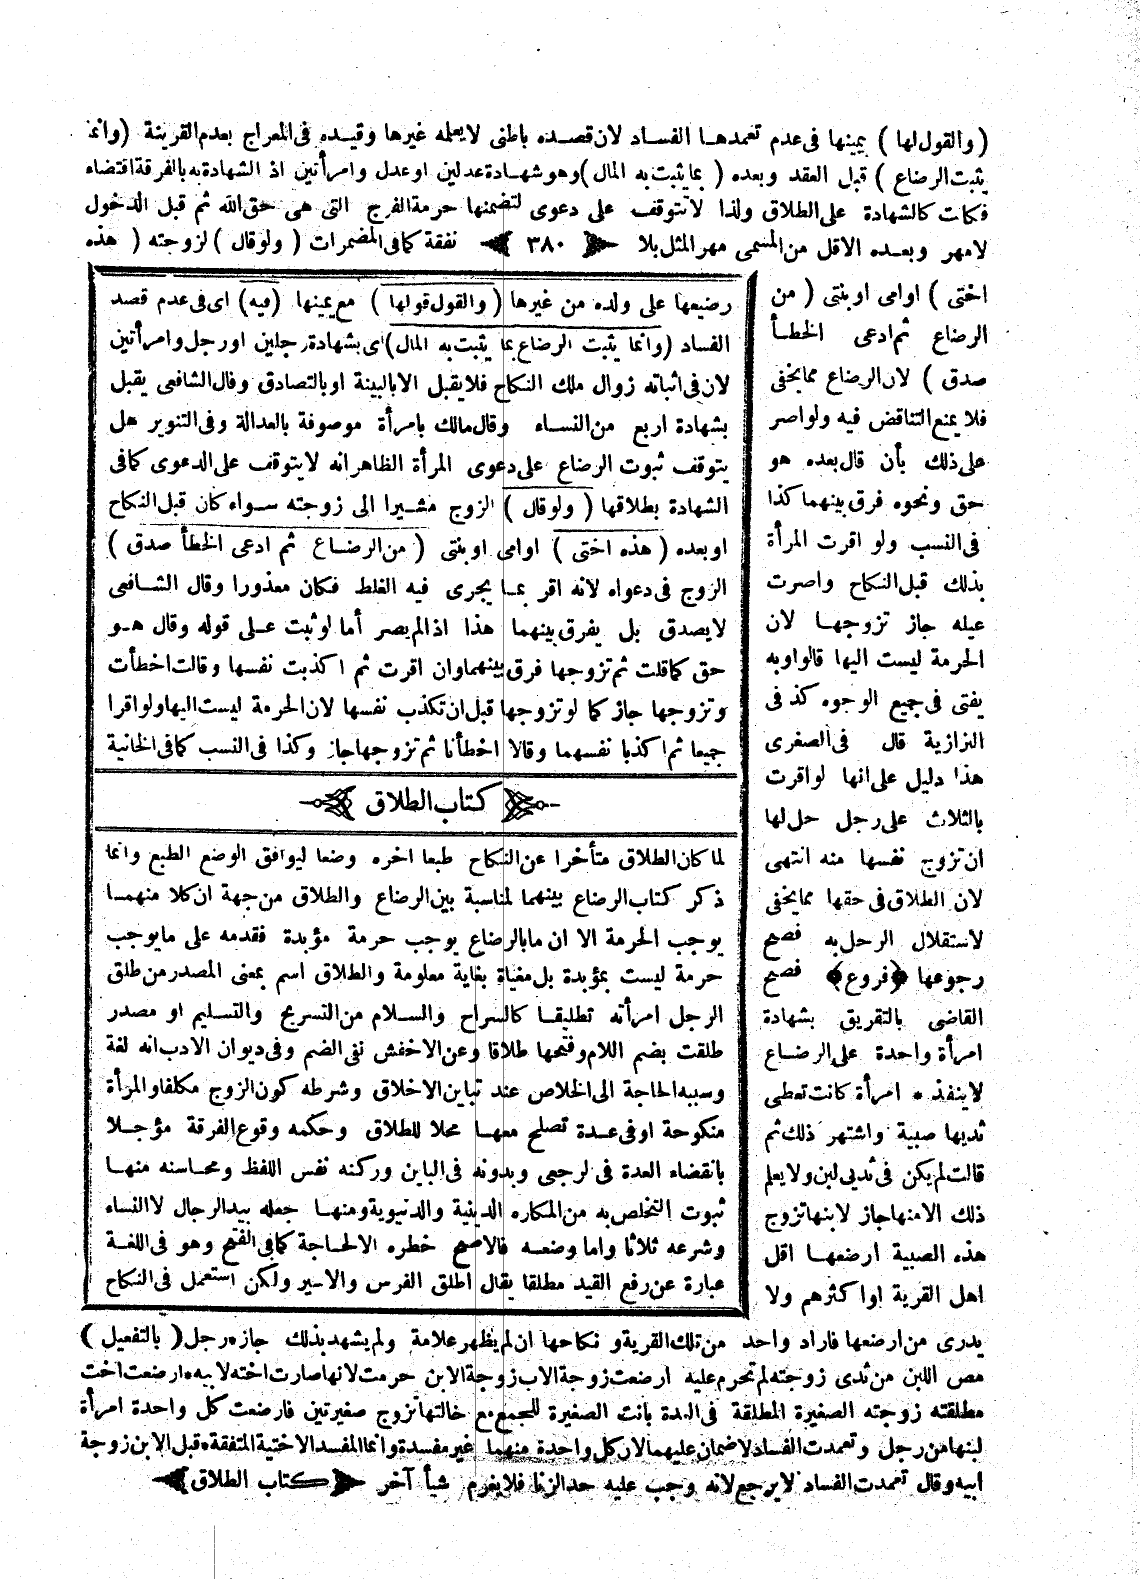 (والقول لها) بيمينها فى عدم تعمدها الفساد لان قصده باطنى لا يعلمه غيرها وقيده فى المعراج بعدم القرينة (وانما
يثبت الرضاع) قبل العقد وبعده (بما يثبت به المال) وهو شهادة عدلين او عدل وامرأتين اذ الشهادة به بالفرقة اقتضاء
فكات كالشهادة على الطلاق ولذا لا تتوقف على دعوى لتضمنها حرمة الفرج التى هى حق الله ثم قبل الدخول
لا مهر وبعده الاقل من المسمى مهر المثل بلا ﴿ ٣٨٠ ﴾ نفقة كما فى المضمرات (ولو قال) لزوجته (هذه
اختى) او امى او بنتى (من
الرضاع ثم ادعى الخطأ
صدق) لان الرضاع مما يخفى
فلا يمنع التناقض فيه ولو اصر
على ذلك بأن قال بعده هو
حق ونحوه فرق بينهما كذا
فى النسب ولو اقرت المرأة
بذلك قبل النكاح واصرت
عيله جاز تزوجها لان
الحرمة ليست اليها قالوا وبه
يفتى فى جميع الوجوه كذ فى
النزازية قال فى الصغرى
هذا دليل على انها لو اقرت
بالثلاث على رجل حل لها
ان تزوج نفسها منه انتهى
لان الطلاق فى حقها مما يخفى
لاستقلال الرحل به فصح
رجوعها ﴿فروع﴾ فصح
القاضى بالتقريق بشهادة
امرأة واحدة على الرضاع
لا ينفذ * امرأة كانت تعطى
ثديها صبية واشتهر ذلك ثم
قالت لم يكن فى ثديى لبن ولا يعلم
ذلك الا منها جاز لابنها تزوج
هذه الصبية ارضعها اقل
اهل القرية او اكثرهم ولا
رضيعها على ولده من غيرها (والقول قولها) مع يمينها (فيه) اى فى عدم قصد
الفساد (وانما يثبت الرضاع بما يثبت به المال) اى بشهادة رجلين اور جل وامرأتين
لان فى اثباته زوال ملك النكاح فلا يقبل الا بالبينة او بالتصادق وقال الشافعى يقبل
بشهادة اربع من النساء وقال مالك بامرأة موصوفة بالعدالة وفى التنوير هل
يتوقف ثبوت الرضاع على دعوى المرأة الظاهر انه لا يتوقف على الدعوى كما فى
الشهادة بطلاقها (ولو قال) الزوج مشيرا الى زوجته سواء كان قبل النكاح
او بعده (هذه اختى) او امى او بنتى (من الرضاع ثم ادعى الخطأ صدق)
الزوج فى دعواه لانه اقر بما يجرى فيه الغلط فكان معذورا وقال الشافعى
لا يصدق بل يفرق بينهما هذا اذ الم يصر أما لو ثبت على قوله وقال هو
حق كما قلت ثم تزوجها فرق بينهما وان اقرت ثم اكذبت نفسها وقالت اخطأت
وتزوجها جاز كما لو تزوجها قبل ان تكذب نفسها لان الحرمة ليست اليها ولو اقرا
جميعا ثم اكذبا نفسهما وقالا اخطأنا ثم تزوجها جاز وكذا فى النسب كما فى الخانية
كتاب الطلاق
لما كان الطلاق متأخرا عن النكاح طبعا اخره وضعا ليوافق الوضع الطبع وانما
ذكر كتاب الرضاع بينهما لمناسبة بين الرضاع والطلاق من جهة ان كلا منهما
يوجب الحرمة الا ان ما بالرضاع يوجب حرمة مؤبدة فقدمه على ما يوجب
حرمة ليست بمؤبدة بل مغياة بغاية معلومة والطلاق اسم بمعنى المصدر من طلق
الرجل امرأته تطليقا كالسراح والسلام من التسريح والتسليم او مصدر
طلقت بضم اللام وفتحها طلاقا وعن الاخفش نفى الضم وفى ديوان الادب انه لغة
وسببه الحاجة الى الخلاص عند تباين الاخلاق وشرطه كون الزوج مكلفا والمرأة
منكوحة او فى عدة تصلح معها محلا للطلاق وحكمه وقوع الفرقة مؤجلا
بانقضاء العدة فى لرجعى وبدونه فى الباين وركنه نفس اللفظ ومحاسنه منها
ثبوت التخلص به من المكاره الدينية والدنيوية ومنها جعله بيد الرجال لا النساء
وشرعه ثلاثا واما وضعه فالاصح خطره الا لحاجة كما فى الفتح وهو فى اللغة
عبارة عن رفع القيد مطلقا يقال اطلق الفرس والاسير ولكن استعمل فى النكاح
يدرى من ارضعها فاراد واحد من تلك القرية ونكاحها ان لم يظهر علامة ولم يشهد بذلك جاز * رجل (بالتفعيل)
مص اللبن من ثدى زوجته لم تحرم عليه ارضعت زوجة الاب زوجة الابن حرمت لانها صارت اخته لابيه * ارضعت اخت
مطلقته زوجته الصغيرة المطلقة فى العدة بانت الصغيرة للجمع مع خالتها تزوج صغيرتين فارضعت كل واحدة امرأة
لبنها من رجل وتعمدت الفساد لا ضمان عليهما لان كل واحدة منهما غير مفسدة وانما المفسد الاختية المتفقة * قبل الابن زوجة
ابيه وقال تعمدت الفساد لا يرجع لانه وجب عليه حد الزنا فلا يغرم شيأ آخر ﴿كتاب الطلاق﴾